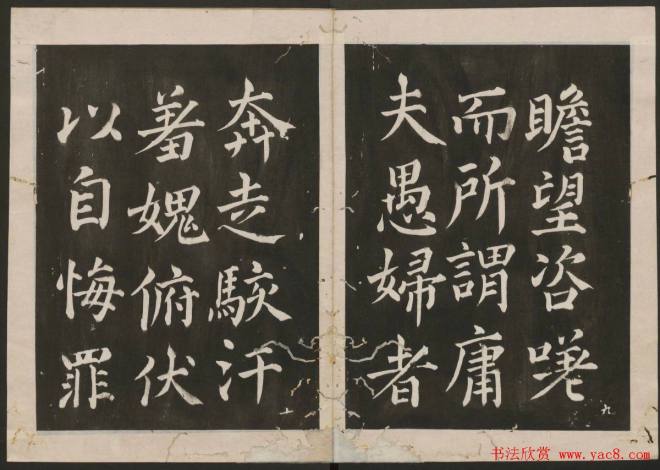 瞻望咨嘆
而所謂庸
夫愚婦者
九
奔走駭汗
羞媿俯伏
以自悔罪
十
书法欣赏 www.yac8.com